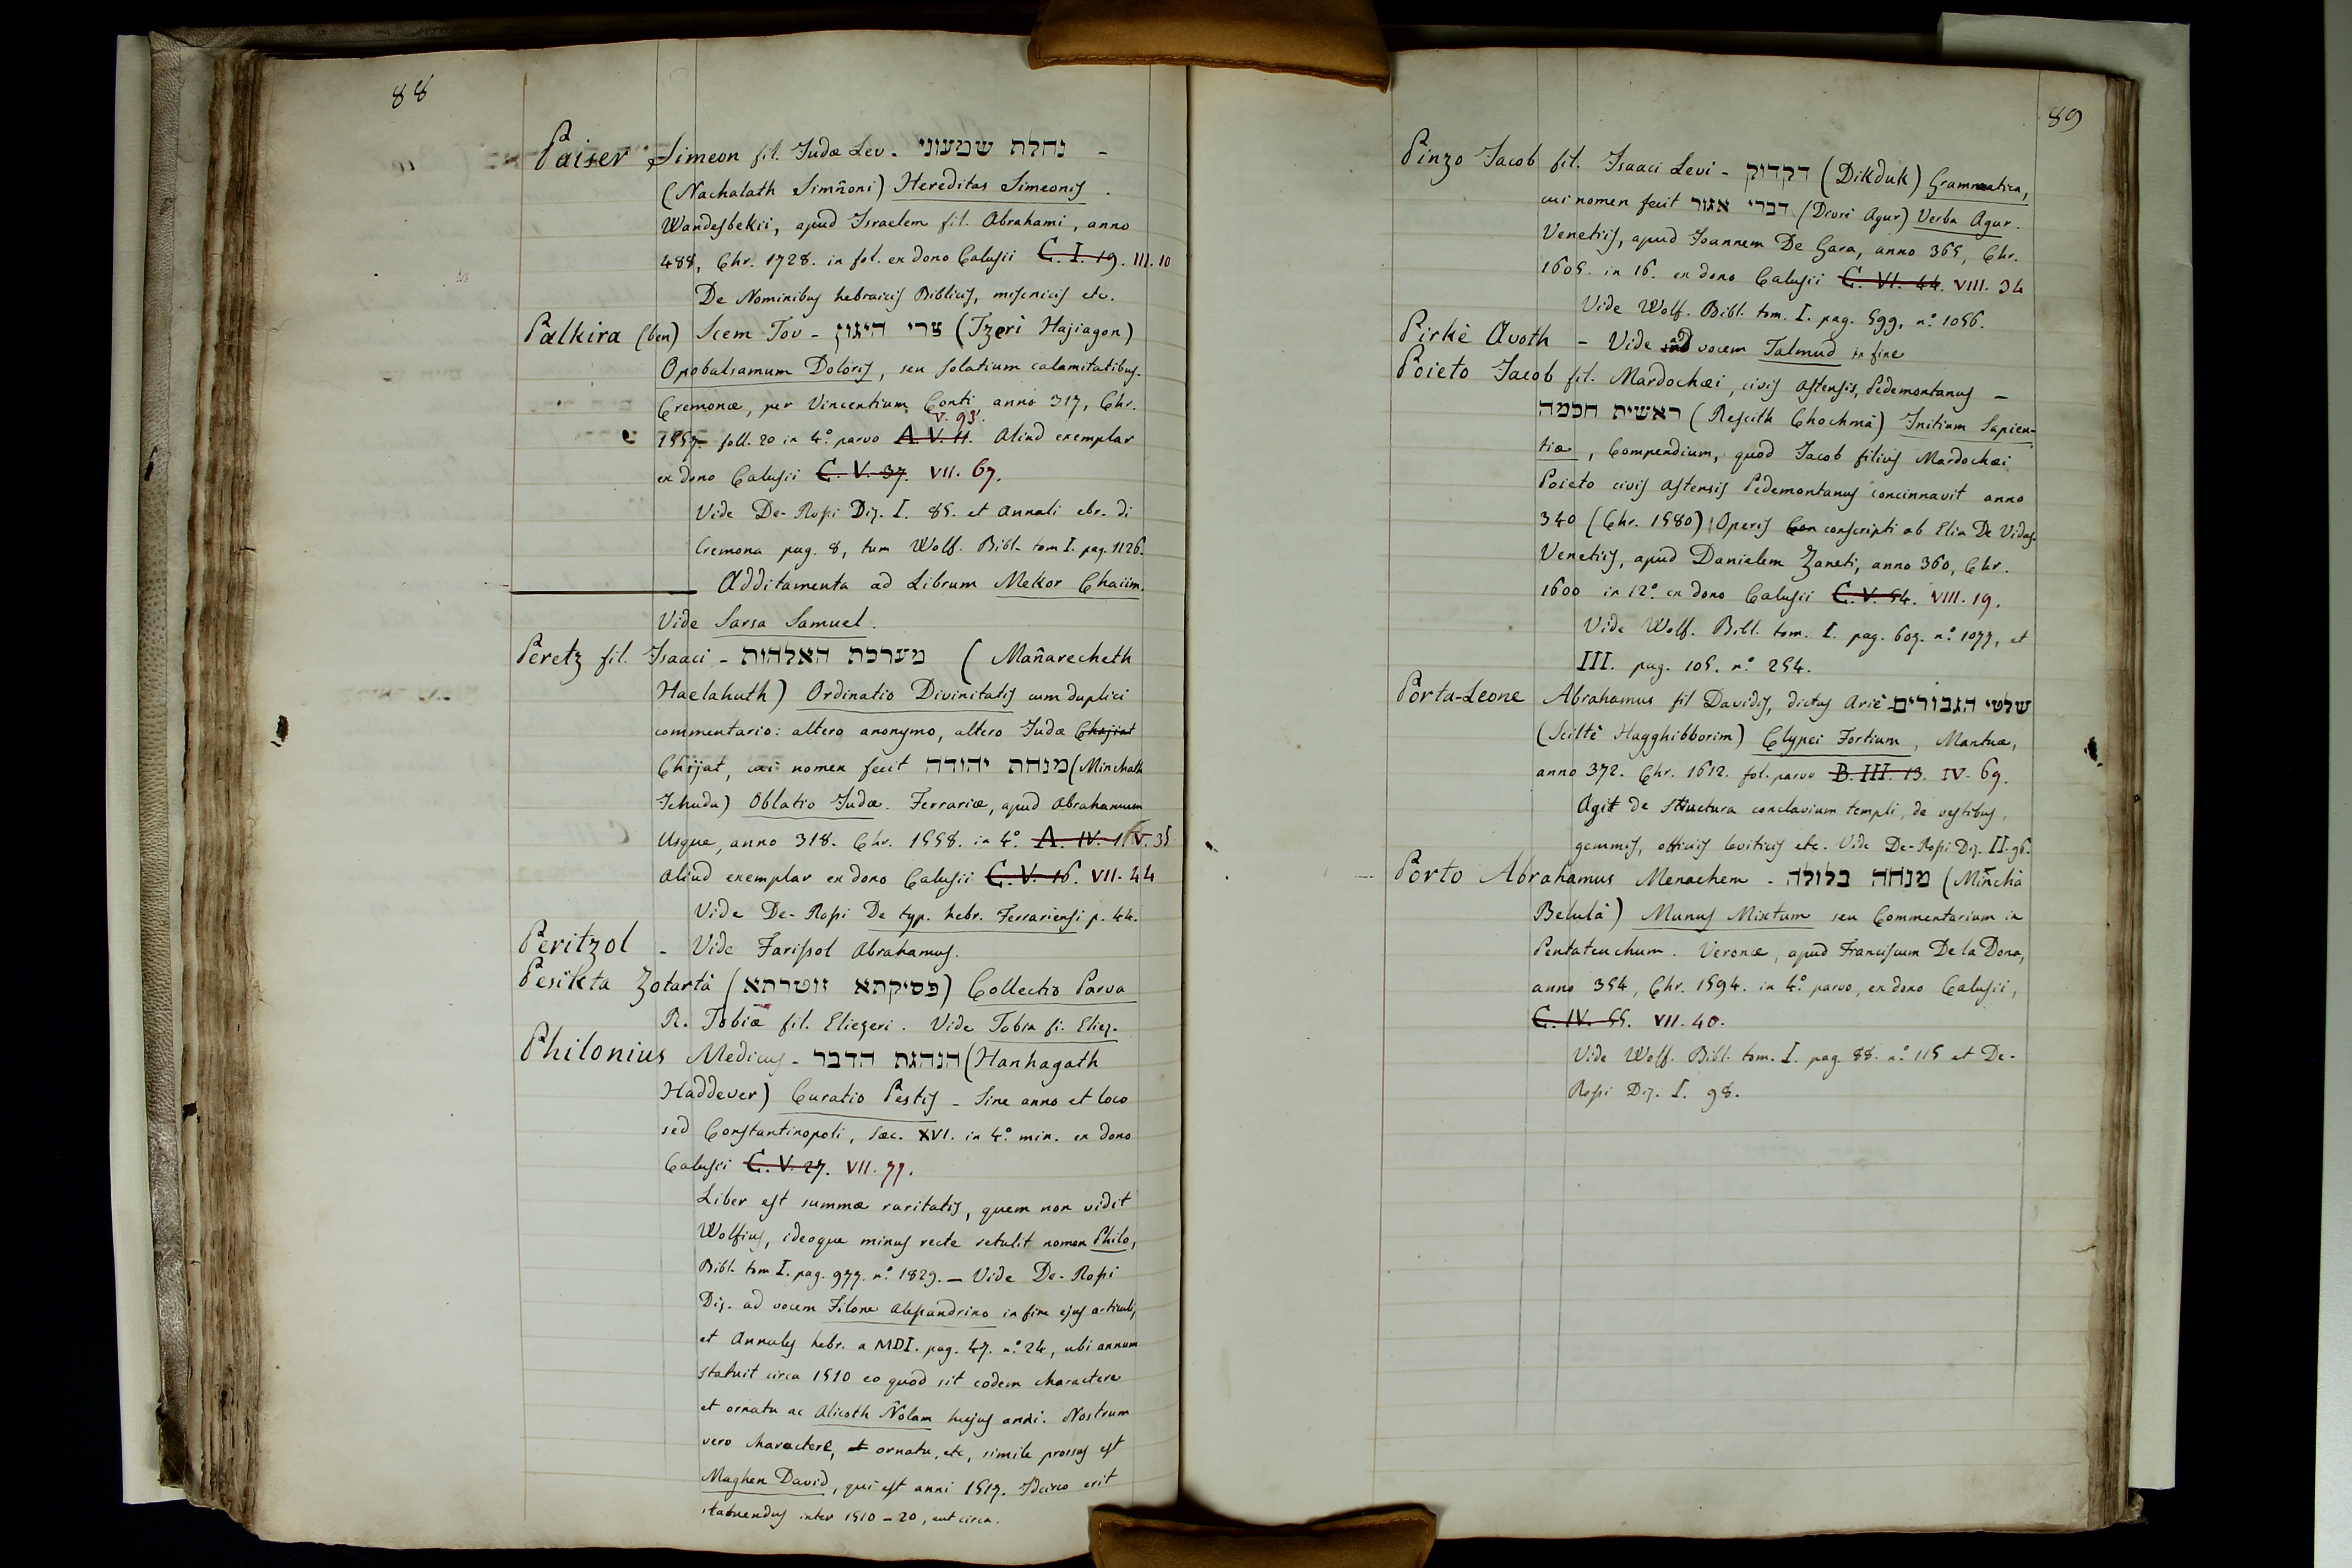 88
Paiser, Simeon fil. Judæ Lev. נחלת שמעוני -
(Nachalath Simñoni) Hereditas Simeonis.
Wandesbekii, apud Israelem fil. Abrahami, anno
488, Chr. 1728. in fol. ex dono Calusii C. I. 19. III. 10
De Nominibus hebraicis Biblicis, misnicis etc.
Palkira (ben) Scem Tov - צרי היגון (Tzeri Hajiagon)
Opobalsamum Doloris, seu solatium calamitatibus.
Cremonæ, per Vincentium Conti anno 317, Chr.
V. 93.
1557. foll. 20 in 4.º parvo A. V. 11. Aliud exemplar
ex dono Calusii C. V. 37. VII. 67.
Vide De-Rossi Diz. I. 85. et Annali ebr. di
Cremona pag. 8, tum Wolf. Bibl. tom I. pag. 1126.
Additamenta ad Librum Mekor Chaiim.
Vide Sarsa Samuel.
Peretz fil. Isaaci - מערכת האלהות (Mañarecheth
Haelahuth) Ordinatio Divinitatis cum duplici
commentario: altero anonymo, altero Judæ Chajiat
Chijat, cui nomen fecit מנחת יהודה (Minchath
Jehuda) Oblatio Judæ. Ferrariæ, apud Abrahamum
Usque, anno 318. Chr. 1558. in 4.º A. IV. V. 35
Aliud exemplar ex dono Calusii C. V. 16. VII. 44
Vide De-Rossi De typ. hebr. Ferrariensi p. 44.
Peritzol - Vide Farissol Abrahamus.
Pesikta Zotartà (פסיקתא זוטרתא) Collectio Parva
R. Tobiæ fil. Eliezeri. Vide Tobia fi. Eliez.
Philonius Medicus - הנהגת הדבר (Hanhagath
Haddever) Curatio Pestis - Sine anno et loco
sed Constantinopoli, sæc. XVI. in 4.º min. ex dono
Calusii C. V. 27. VII. 77.
Liber est summæ raritatis, quem non vidit
Wolfius, ideoque minus recte retulit nomen Philo,
Bibl. tom I. pag. 977. n.º 1829. - Vide De-Rossi
Diz. ad vocem Filone Alessandrino in fine ejus articuli,
et Annales hebr. a MDI. pag. 47. n.º 24, ubi annum
statuit circa 1510 eo quod sit eodem charactere
et ornatu ac Alicoth Ñolam hujus anni. Nostrum
vero charactere, et ornatu, etc, simile prorsus est
Maghen David, qui est anni 1517. Idcirco erit
statuendus inter 1510-20, aut circa.
89
Pinzo Jacob fil. Isaaci Levi - דקדוק (Dikduk) Grammatica,
cui nomen fecit דברי אגור (Divri Agur) Verba Agur.
Venetiis, apud Joannem De Gara, anno 365, Chr.
1605. in 16. ex dono Calusii C. VI. 44. VIII. 34
Vide Wolf. Bibl. tom. I. pag. 599, n.º 1056.
Pirkè Avoth - Vide ad vocem Talmud in fine
Poieto Jacob fil. Mardochæi, civis Astensis, Pedemontanus -
ראשית חכמה (Rescith Chochmà) Initium Sapien-
tiæ, Compendium, quod Jacob filius Mardochæi
Poieto civis Astensis Pedemontanus concinnavit anno
340 (Chr. 1580) Operis Con conscripti ab Elia De Vidas.
Venetiis, apud Danielem Zaneti, anno 360, Chr.
1600 in 12.º ex dono Calusii C. V. 54. VIII. 19.
Vide Wolf. Bibl. tom. I. pag. 607. n.º 1077, et
III. pag. 105. n.º 254.
Porta-Leone Abrahamus fil Davidis, dictus Ariè - שלטי הגבורים
(Sciltè Hagghibborim) Clypei Fortium, Mantuæ,
anno 372. Chr. 1612. fol. parvo B. III. 13. IV. 69.
Agit de structura conclavium templi, de vestibus,
gemmis, officiis leviticis etc. Vide De-Rossi Diz. II. 96.
Porto Abrahamus Menachem - מנחה בלולה (Minchà
Belulà) Munus Mixtum seu Commentarium in
Pentateuchum. Veronæ, apud Franciscum De la Dona,
anno 354, Chr. 1594. in 4.º parvo, ex dono Calusii,
C. IV. 55. VII. 40.
Vide Wolf. Bibl. tom. I. pag. 88. n.º 115 et De-
Rossi Diz. I. 98.